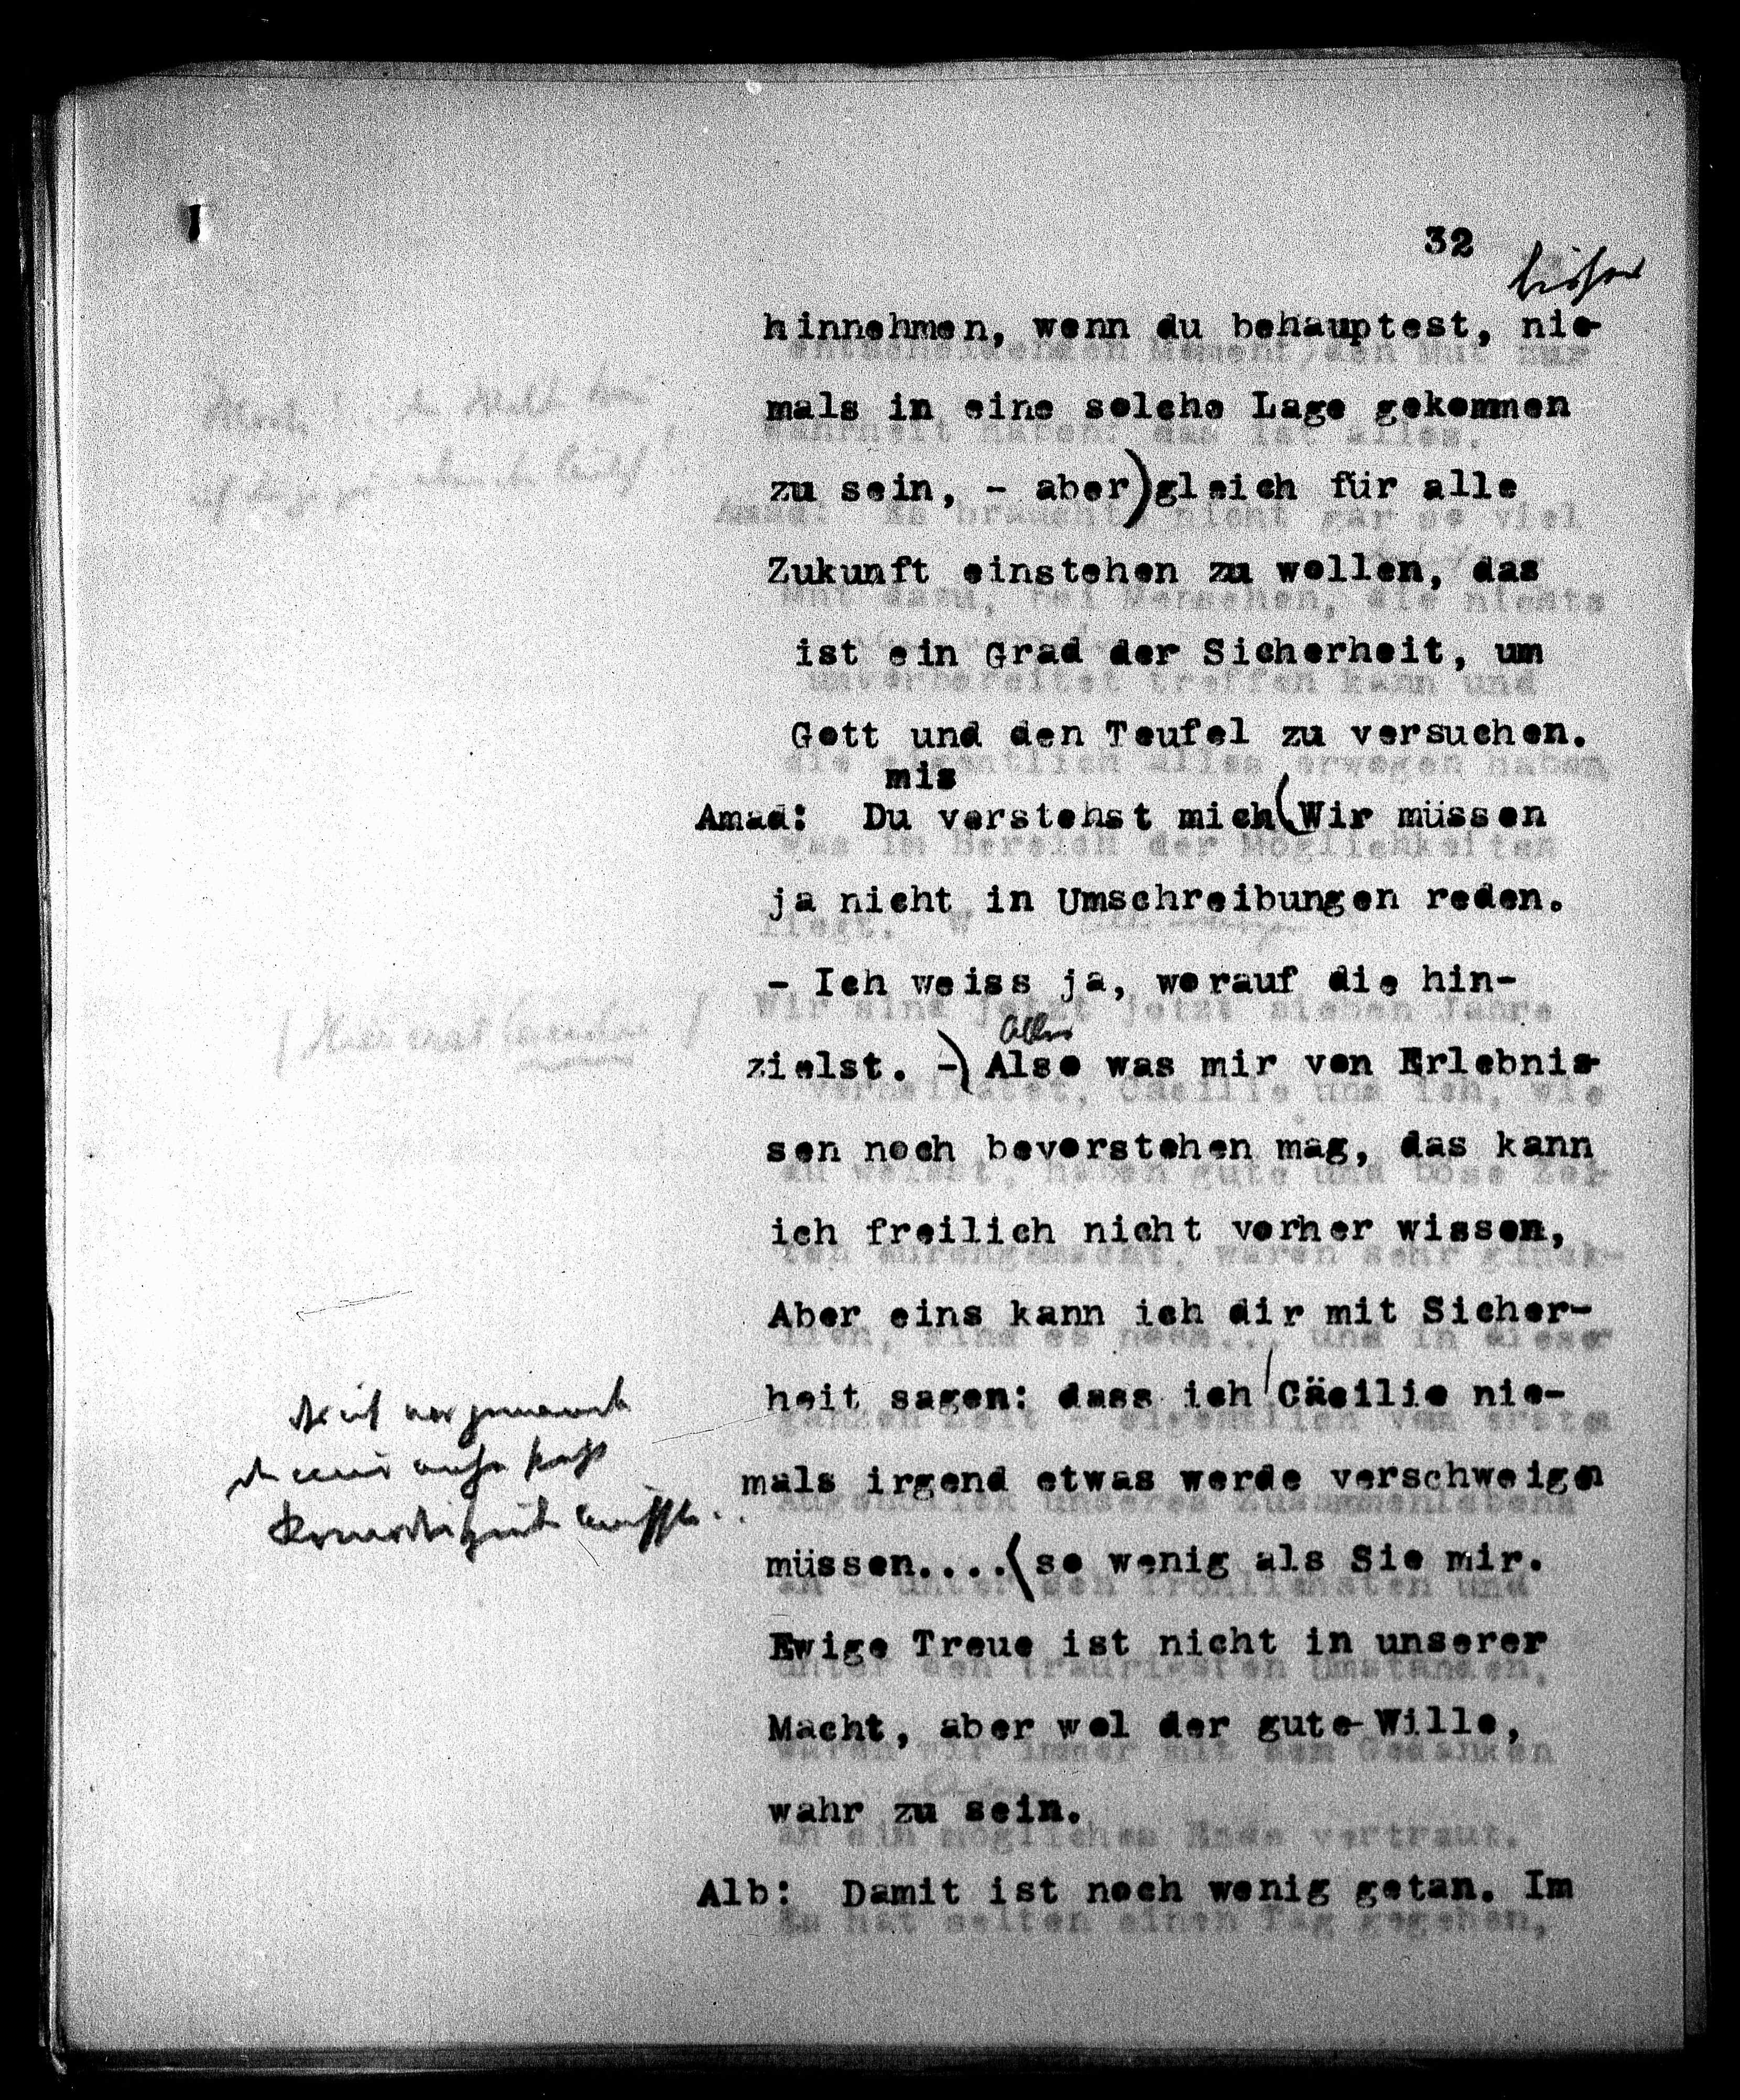 32
bisher
hinnehmen, wenn du behauptest, nie-
mals in eine solche Lage gekommen
zu sein, - aber) gleich für alle
Zukunft einstehen zu wollen, das
ist ein Grad der Sicherheit, um
Gott und den Teufel zu versuchen.
mis
Amad: Du verstehst mich (Wir müssen
ja nicht in Umschreibungen reden.
- Ich weiss ja, worauf die hin-
zielst. -) Also was mir von Erlebnis-
sen noch bevorstehen mag, das kann
ich freilich nicht vorher wissen,
Aber eins kann ich dir mit Sicher-
heit sagen: dass ich Cäcilie nie-
mals irgend etwas werde verschweigen
müssen.... (so wenig als Sie mir.
Ewige Treue ist nicht in unserer
Macht, aber wol der gute Wille,
wahr zu sein.
Alb: Damit ist noch wenig getan. Im